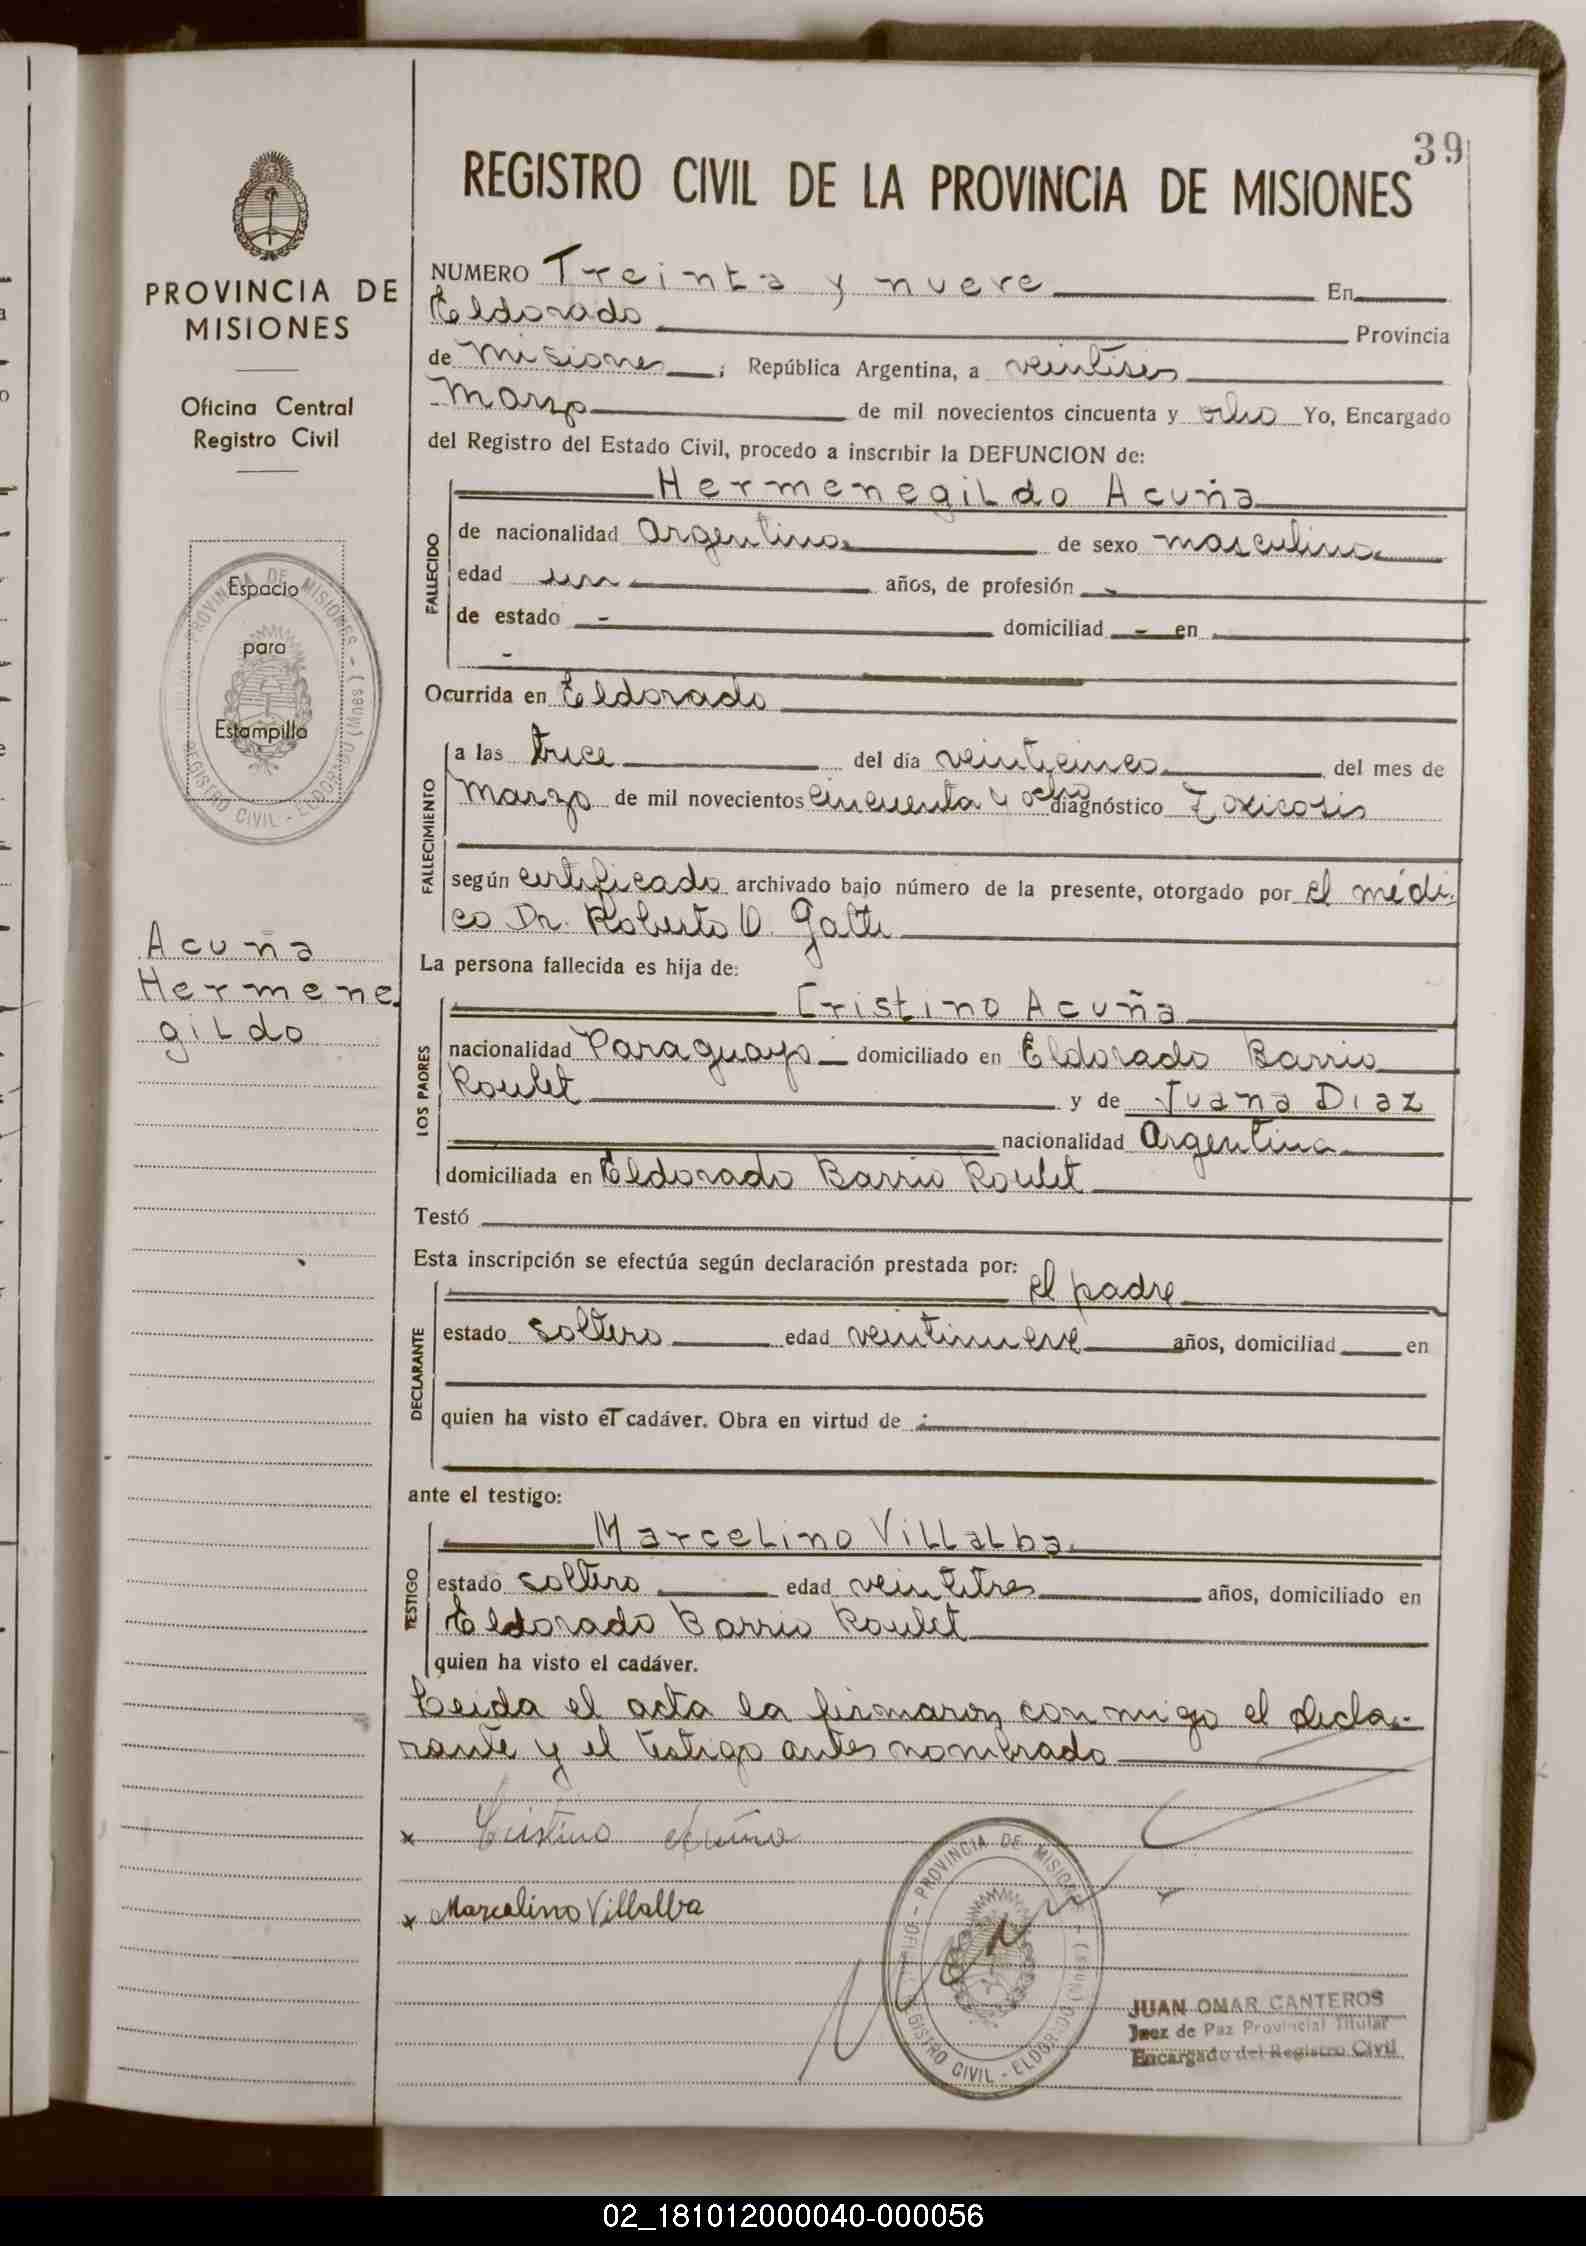 39
REGISTRO CIVIL DE LA PROVINCIA DE MISIONES
PROVINCIA DE
MISIONES
Oficina Central
Registro Civil
Espacio
para
Estampilla
Acuña
Hermene
gildo
NUMERO Treinta y nueve En
Eldorado Provincia
de Misiones ; República Argentina, a veintiseis
Marzo de mil novecientos cincuenta y ocho Yo, Encargado
del Registro del Estado Civil, procedo a inscribir la DEFUNCION de:
Hermenegildo Acuña
FALLECIDO
de nacionalidad Argentina de sexo masculino
edad un años, de profesión -
de estado - domiciliad - en
-
Ocurrida en Eldorado
FALLECIMIENTO
a las trece del día veinticinco del mes de
Marzo de mil novecientos cincuenta y ocho diagnóstico Toxicosis
según certificado archivado bajo número de la presente, otorgado por el médi-
co Dr. Roberto O. Gatti
La persona fallecida es hija de:
LOS PADRES
Cristino Acuña
nacionalidad Paraguayo domiciliado en Eldorado Barrio
Roulet y de Juana Diaz
nacionalidad Argentina
domiciliada en Eldorado Barrio Roulet
Testó
Esta inscripción se efectúa según declaración prestada por:
DECLARANTE
el padre
estado soltero edad veintinueve años, domiciliad en
quien ha visto el cadáver. Obra en virtud de :
ante el testigo:
TESTIGO
Marcelino Villalba
estado soltero edad veintitres años, domiciliado en
Eldorado Barrio Roulet
quien ha visto el cadáver.
Leida el acta la firmaron conmigo el decla-
rante y el testigo antes nombrado
x Cristino Acuña
x Marcelino Villalba
PROVINCIA DE MISIONES
REGISTRO CIVIL - ELDORADO
JUAN OMAR CANTEROS
Juez de Paz Provincial Titular
Encargado del Registro Civil
02_181012000040-000056